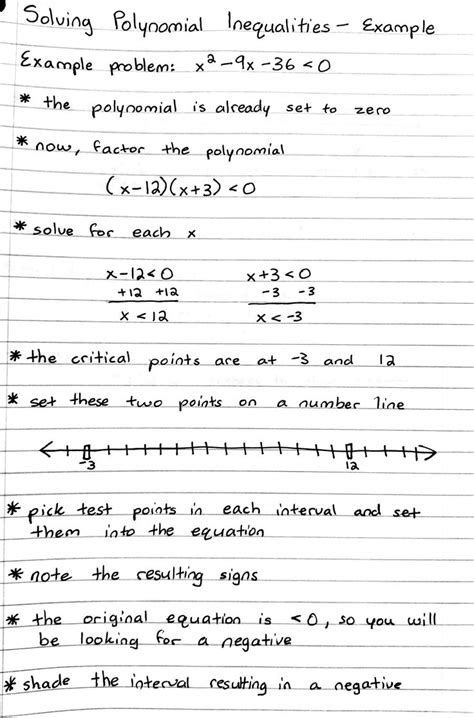 Solving Polynomial Inequalities - Example
Example problem: x² - 9x - 36 < 0
* the polynomial is already set to zero
* now, factor the polynomial
(x-12)(x+3) < 0
* solve for each x
x-12<0 x+3<0
+12 +12 -3 -3
x < 12 x < -3
* the critical points are at -3 and 12
* set these two points on a number line
-3 12
* pick test points in each interval and set
them into the equation
* note the resulting signs
* the original equation is <0, so you will
be looking for a negative
* shade the interval resulting in a negative